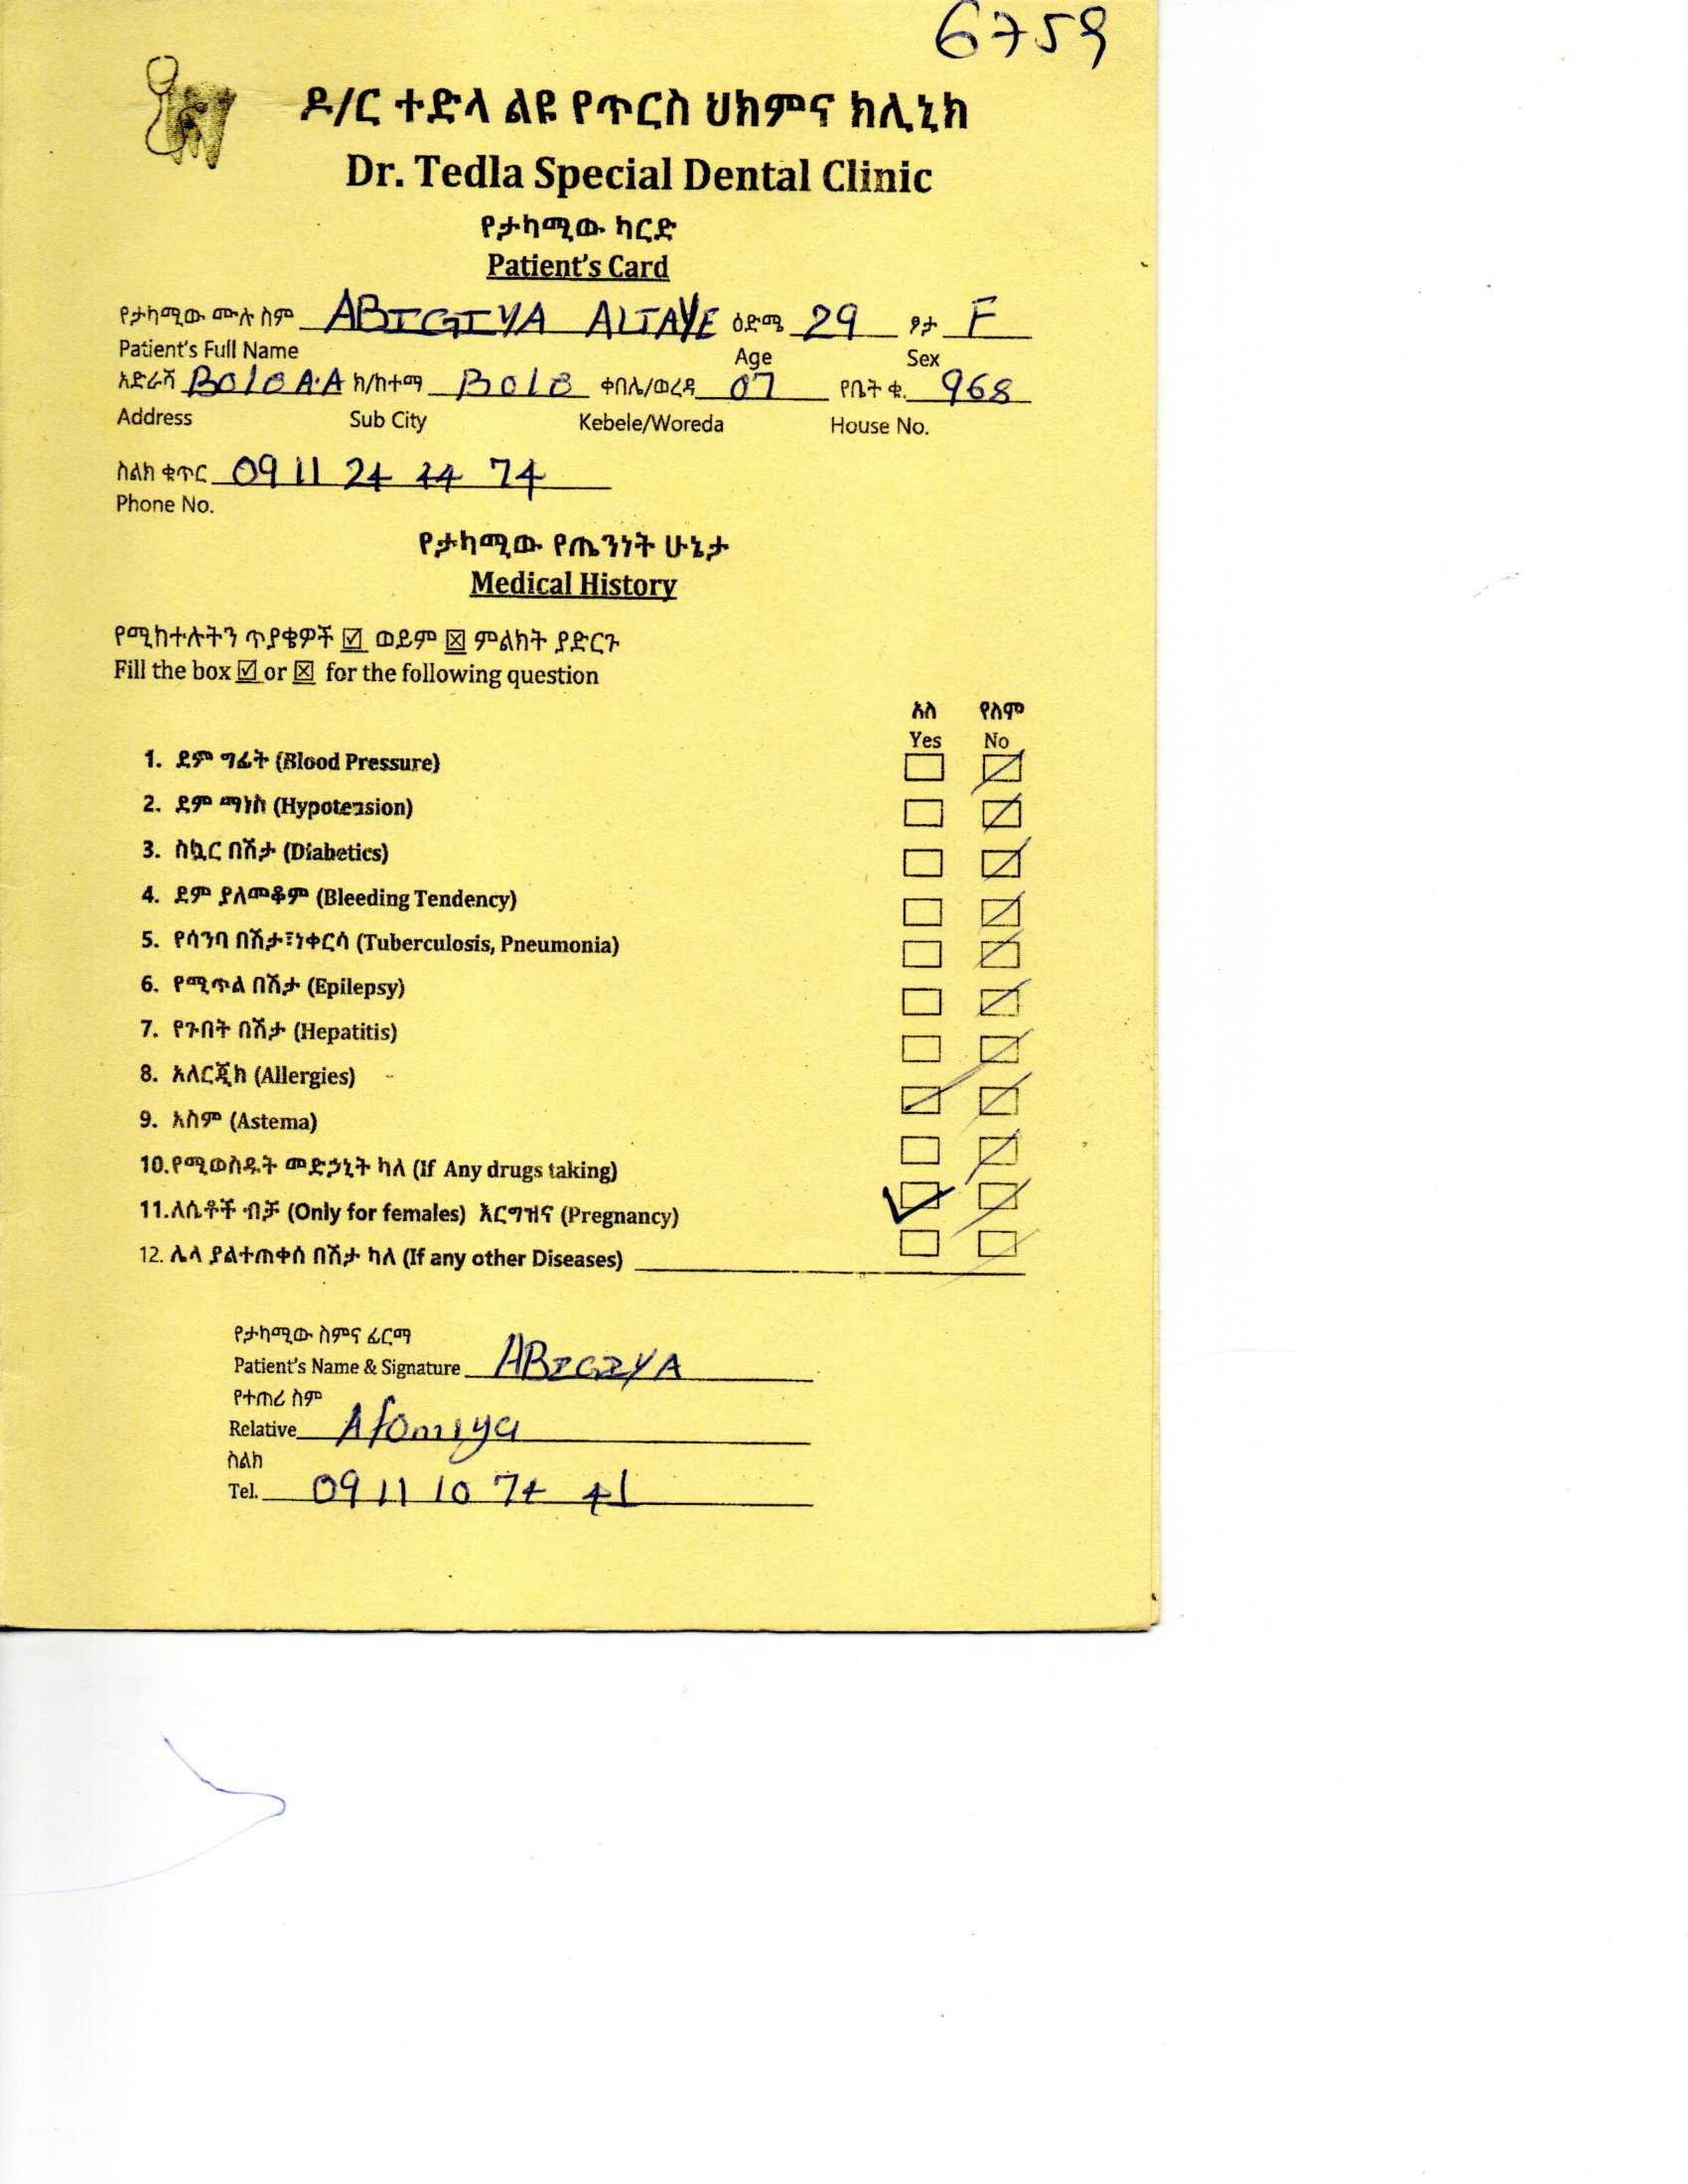 6759
ዶ/ር ተድላ ልዩ የጥርስ ህክምና ክሊኒክ
Dr. Tedla Special Dental Clinic
የታካሚው ካርድ
Patient's Card
የታካሚው ሙሉ ስም ABIGIYA ALTAYE ዕድሜ 29 ፆታ F
Patient's Full Name Age Sex
አድራሻ BOLE A.A ክ/ከተማ BOLE ቀበሌ/ወረዳ 07 የቤት ቁ. 968
Address Sub City Kebele/Woreda House No.
ስልክ ቁጥር 09 11 24 44 74
Phone No.
የታካሚው የጤንነት ሁኔታ
Medical History
የሚከተሉትን ጥያቄዎች ☑ ወይም ☒ ምልክት ያድርጉ
Fill the box ☑ or ☒ for the following question
አለ የለም
Yes No
1. ደም ግፊት (Blood Pressure)
2. ደም ማነስ (Hypotension)
3. ስኳር በሽታ (Diabetics)
4. ደም ያለመቆም (Bleeding Tendency)
5. የሳንባ በሽታ፣ነቀርሳ (Tuberculosis, Pneumonia)
6. የሚጥል በሽታ (Epilepsy)
7. የጉበት በሽታ (Hepatitis)
8. አለርጂክ (Allergies)
9. አስም (Astema)
10.የሚወስዱት መድኃኒት ካለ (If Any drugs taking)
11.ለሴቶች ብቻ (Only for females) እርግዝና (Pregnancy)
12. ሌላ ያልተጠቀሰ በሽታ ካለ (If any other Diseases)
የታካሚው ስምና ፊርማ
Patient's Name & Signature ABIGIYA
የተጠሪ ስም
Relative Afomiya
ስልክ
Tel. 09 11 10 74 41